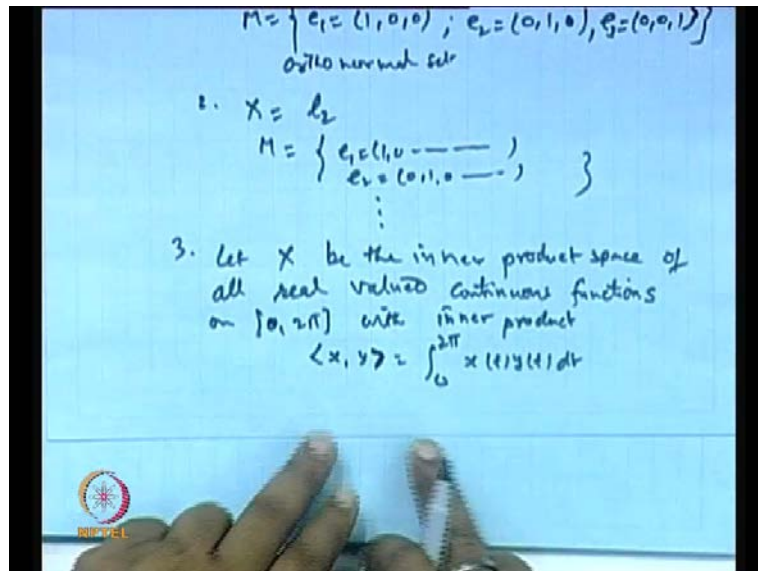 M = { e₁ = (1,0,0) ; e₂ = (0,1,0), e₃=(0,0,1)}
orthonormal set
2. X = l₂
M = { e₁=(1,0 ----- )
e₂ = (0,1,0 --- ) }
⋮
3. Let X be the inner product space of
all real valued continuous functions
on [0, 2π] with inner product
<x, y> = ∫₀^2π x(t) y(t) dt
NPTEL